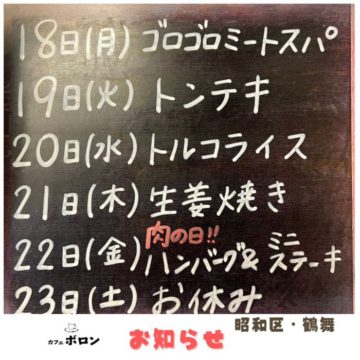 18日(月) ゴロゴロミートスパ
19日(火) トンテキ
20日(水) トルコライス
21日(木) 生姜焼き
肉の日!!
22日(金) ハンバーグ&ミニステーキ
23日(土) お休み
カフェ ボロン
お知らせ
昭和区・鶴舞